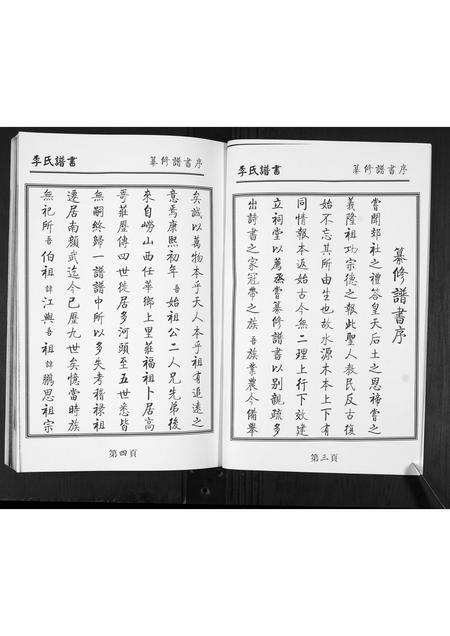 李氏譜書 纂修譜書序
纂修譜書序
嘗聞郊社之禮答皇天后土之恩禘嘗之
義隆祖功宗德之報此聖人教民反古復
始不忘其所由生也故水源木本上下有
同情報本返始古今無二理上行下效建
立祠堂以薦烝嘗纂修譜書以別親疏多
出詩書之家冠帶之族吾族業農今備舉
第三頁
李氏譜書 纂修譜書序
矣誠以萬物本乎天人本乎祖有追遠之
意焉康熙初年吾始祖公二人兄先弟後
來自嶗山西任華鄉上里莊福祖卜居高
哥莊歷傳四世徙居多河頭至五世悉皆
無嗣終歸一譜譜中所以多失考稽祿祖
遷居南顏武迄今已歷九世矣憶當時族
無祀所吾伯祖諱江與吾祖諱鵬思祖宗
第四頁